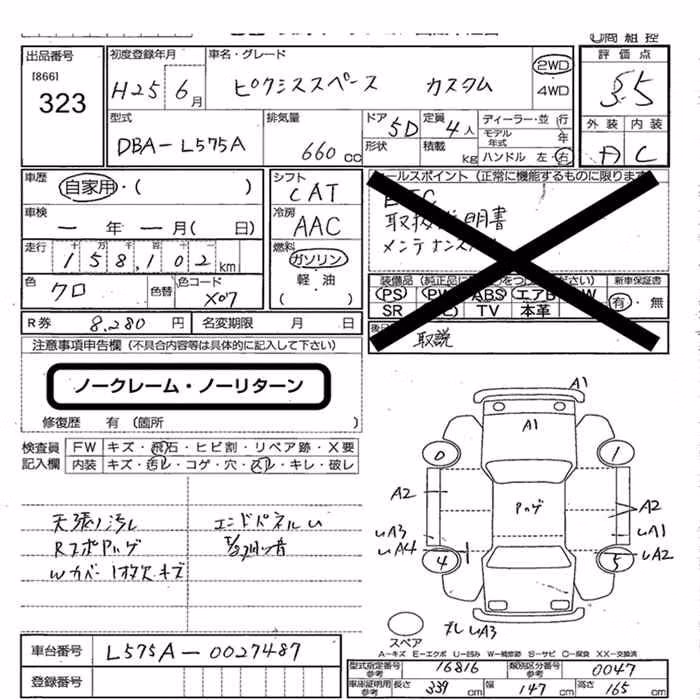 出品番号 初度登録年月 車名・グレード 評価点
[866]
323
H25 6月 ピクシススペース カスタム 2WD 4WD 3.5
型式 排気量 ドア 定員 ディーラー・並行 外装 内装
DBA-L575A 660cc 5D 4人 モデル年式 年 A C
形状 積載 kg ハンドル 左・右
車歴 シフト セールスポイント(正常に機能するものに限ります)
自家用・( ) CAT
取扱説明書
車検 冷房
ー年ー月( 日) AAC
走行 燃料
十万千百十一
158,102km ガソリン
軽油
( )
色 色替 色コード
クロ X07
装備品 新車保証書
PS ABS 有・無
SR TV 本革
取説
R券 8,280円 名変期限 月 日
注意事項申告欄(不具合内容等は具体的に記入して下さい)
ノークレーム・ノーリターン
修復歴 有(箇所 )
検査員記入欄 FW キズ・飛石・ヒビ割・リペア跡・X要
内装 キズ・汚レ・コゲ・穴・スレ・キレ・破レ
天張リ汚レ エンドパネルU
RスポPハゲ
Wカバー1枚欠キズ
A1
A1
0 1
A2 Pハゲ A2
UA3 UA1
UA4 UA2
4 5
スペア UA3
A-キズ E-エクボ U-凹み W-補修跡 S-サビ C-腐食 XX-交換済
車台番号 L575A-0027487
登録番号
型式指定番号 参考 16816 類別区分番号 参考 0047
車庫証明用 参考 長さ 339cm 幅 147cm 高さ 165cm